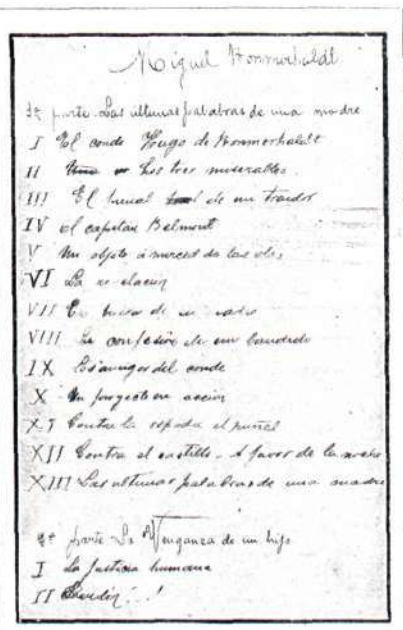 Miguel Bonmorhaldt
1ª parte Las ultimas palabras de una madre
I El conde Hugo de Bonmorhaldt
II Los tres miserables
III El de un traidor
IV el capitan Belmont
V Un objeto á merced de las olas
VI La revelación
VII En busca de un
VIII La confesión de un bandido
IX Los amigos del conde
X Un proyecto en acción
XI Contra la espada el puñal
XII Contra el castillo. A favor de la
XIII Las ultimas palabras de una madre
2ª parte La Venganza de un hijo
I La justicia humana
II